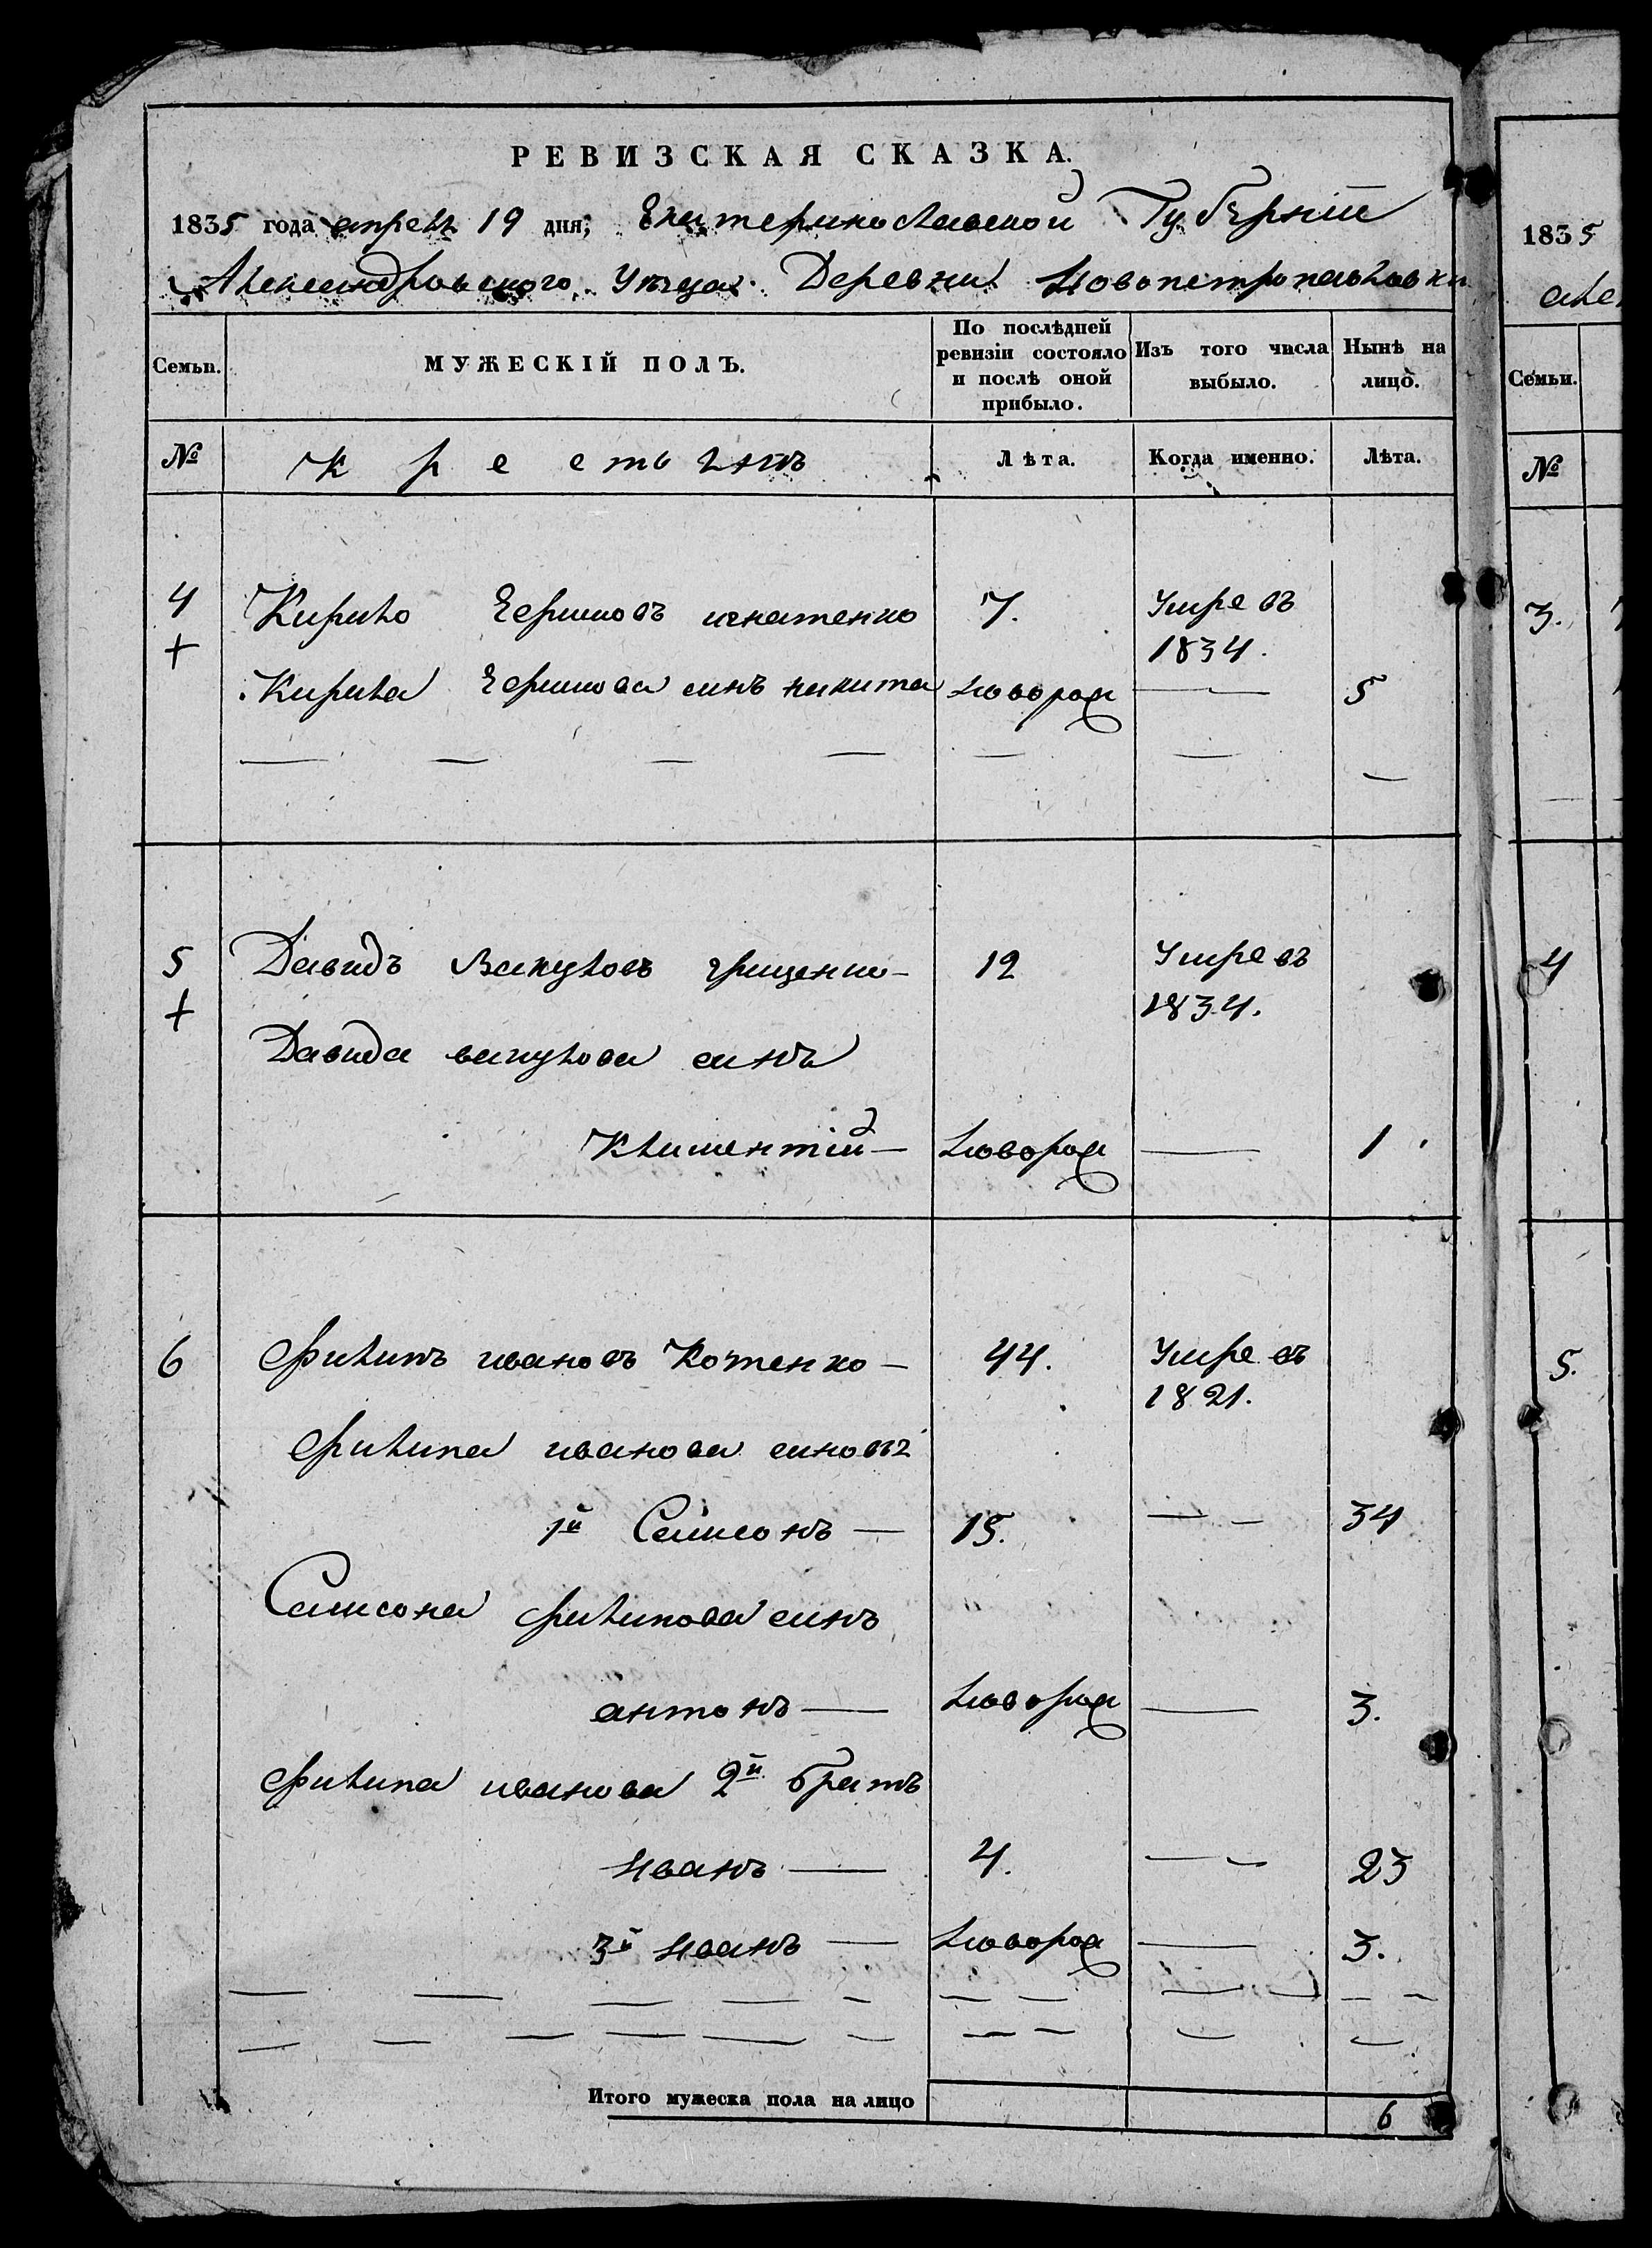 РЕВИЗСКАЯ СКАЗКА.
1835 года апреля 19 дня; Екатеринославской Губерніи
Александровского Уезда Деревни Новопетропавловки
Семьи. МУЖЕСКІЙ ПОЛЪ. По послѣдней ревизіи состояло и послѣ оной прибыло. Изъ того числа выбыло. Нынѣ на лицо.
№ крестьянъ Лѣта. Когда именно. Лѣта.
4 Кирило Ефимовъ игнатенко 7. Умре въ
+ 1834.
Кирила Ефимова синъ никита новорож 5
5 Давидъ Вакуловъ грищенко 12 Умре въ
+ 1834.
Давида вакулова синъ
Климентій новорож 1
6 Филипъ ивановъ Котенко 44. Умре въ
1821.
Филипа иванова
1й Самсонъ 15. 34
Самсона филипова синъ
антонъ новорож 3.
Филипа иванова 2й братъ
иванъ 4. 23
3й иванъ новорож 3.
Итого мужеска пола на лицо 6
1835
але
Семьи.
№
3.
4
5.